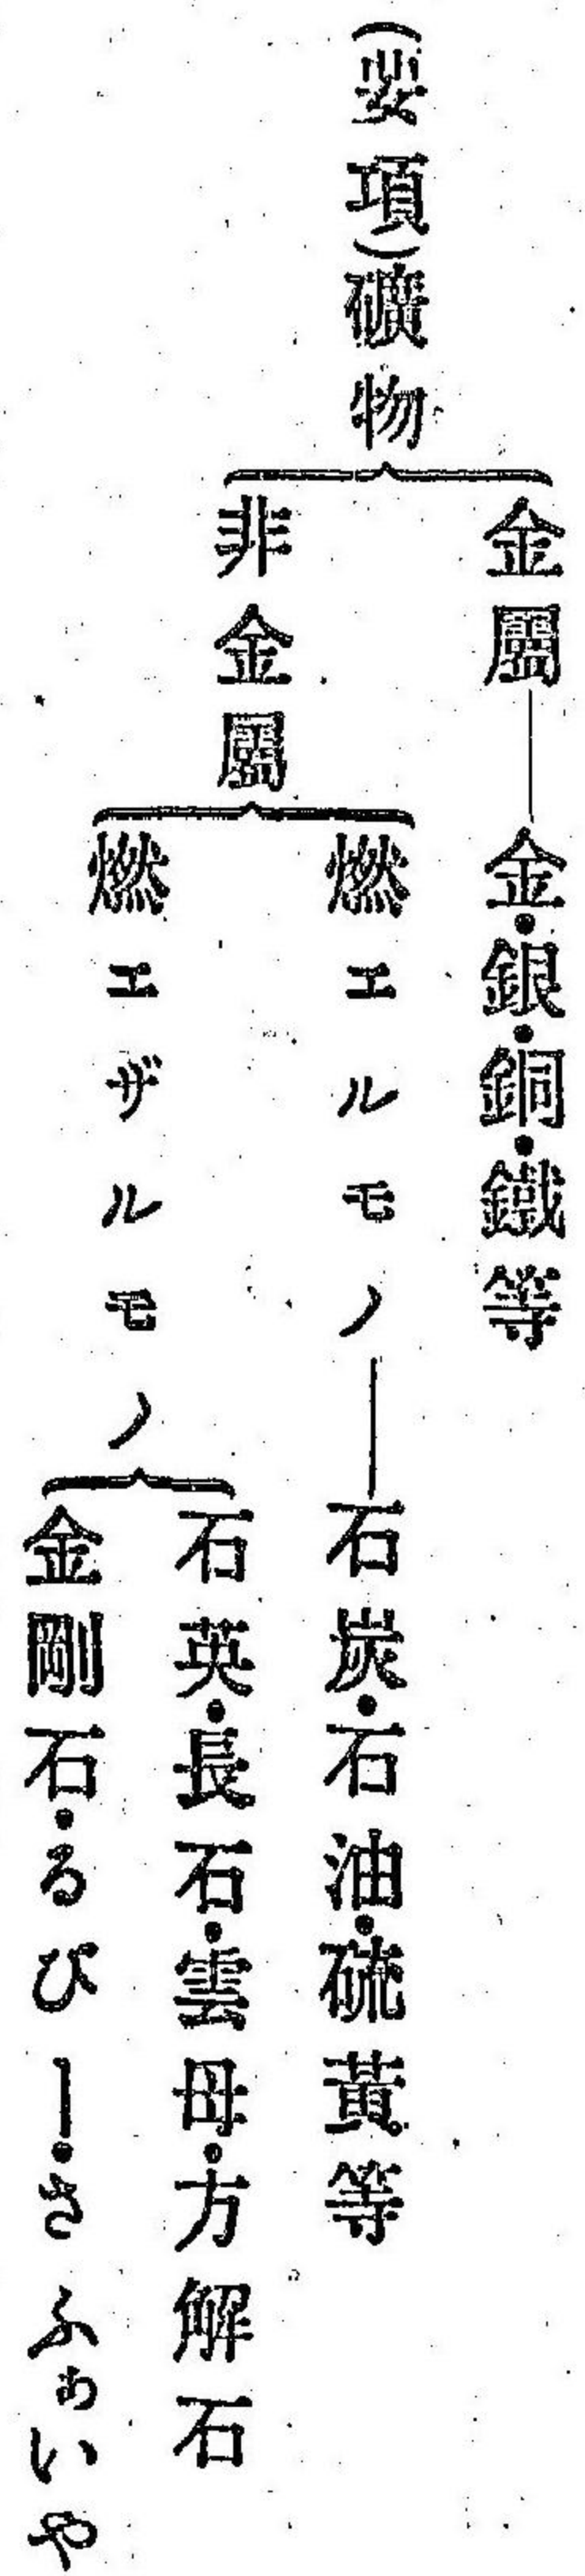 (要項)礦物
金屬―金・銀・銅・鐵等
非金屬
燃エルモノ―石炭・石油・硫黃等
燃エザルモノ
石英・長石・雲母・方解石
金剛石・るびー・さふぁいや